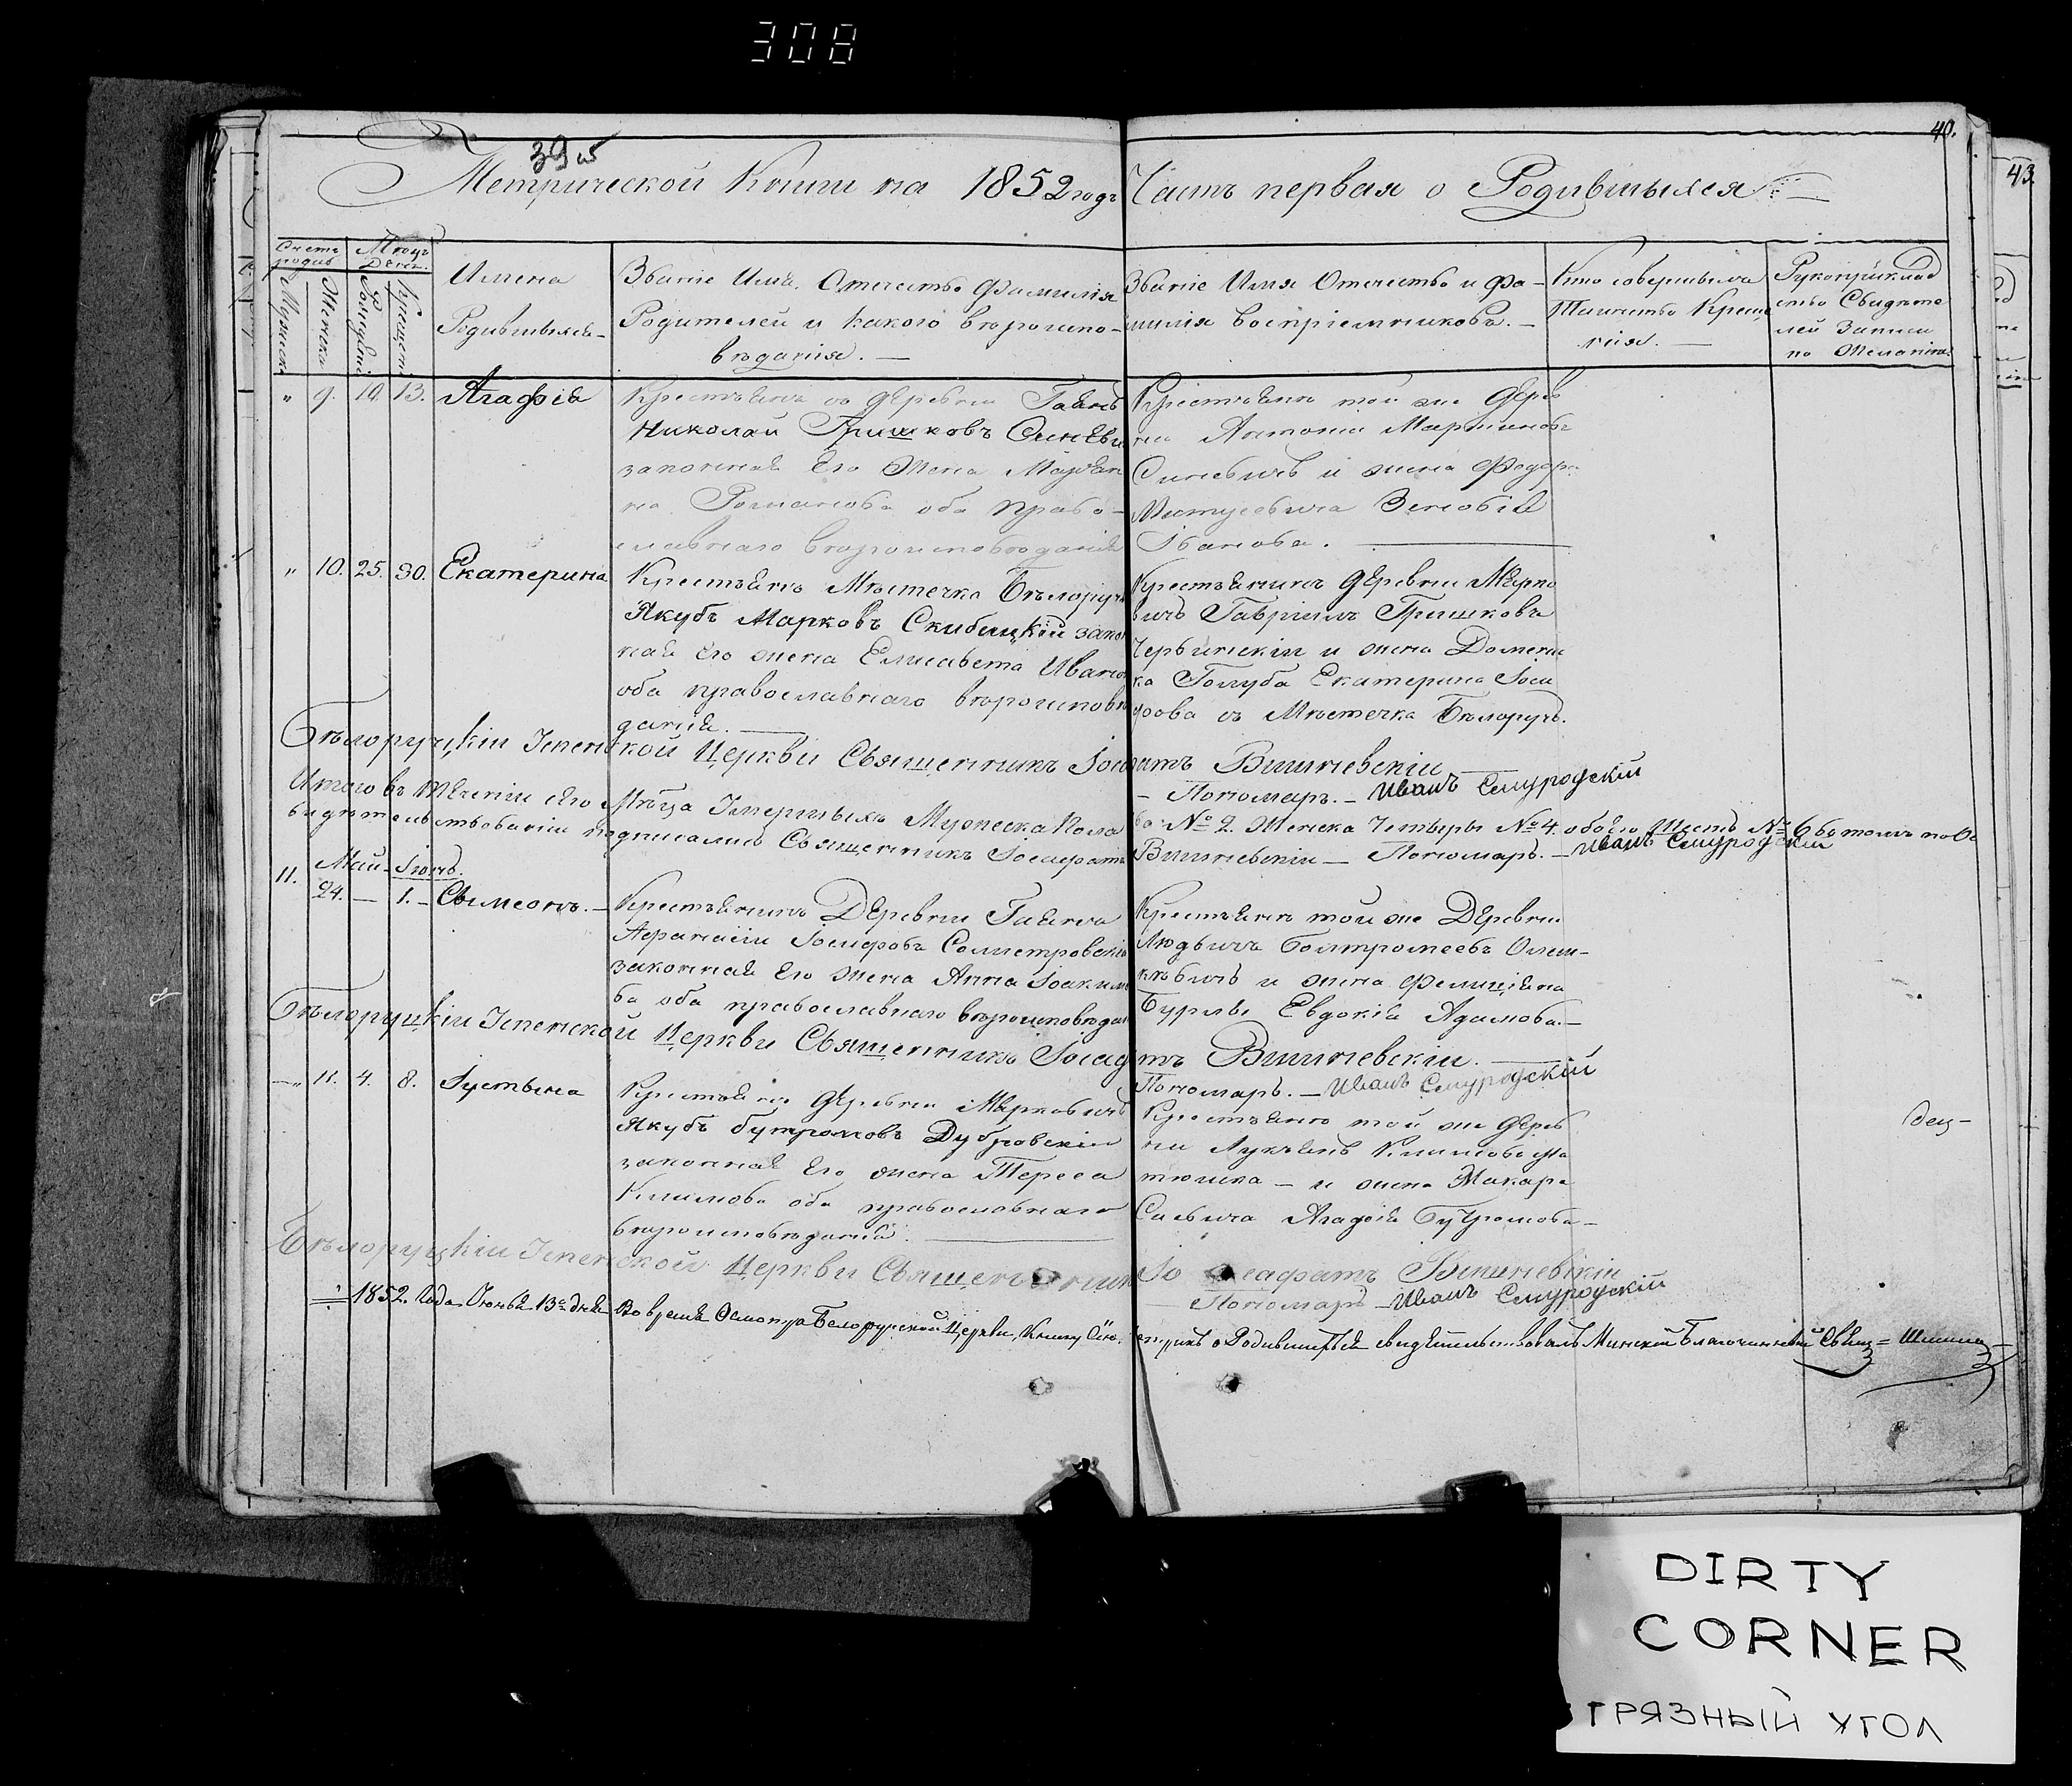 308
39 об
40.
43.
Метрической Книги на 1852 годъ Часть первая о Родившыхся
Счетъ родив
Мѣсяцъ День.
Имена Родившыхся
Званіе Имя. Отчество Фамилія
Родителей и какого вѣроиспо-
вѣданія. —
Званіе Имя Отчество и Фа-
милія воспріемниковъ. —
Кто совершывъ
Таинство Креще
нія. —
Рукоприклад
ство Свидѣте
лей записи
по Желанію
Мужеска
Женска
Рожденія
Крещенія
" 9. 10. 13. Агафія
Крестьянъ съ деревни Гаянъ
Николай Гришковъ Синеви
законная Его Жена Марьян
на Романова оба право-
славнаго вѣроисповѣданія
Крестьянъ той же Дерев
ни Антоній Мартиновъ
Синевичъ и жена Федора
Матусевича Зеновія
Іванова.
" 10. 25. 30. Екатерина
Крестьянъ Мѣстечка Бѣлоруч
Якубъ Марковъ Скибицкій закон
ная Его жена Елисавета Иванов
оба православнаго вѣроисповѣ
данія. —
Крестьянинъ Деревни Марко
вичъ Гавріилъ Гришковъ
Червинскій и жена Домени
ка Голуба Екатерина Іоси
фова съ Мѣстечка Бѣлоручъ.
Бѣлоруцкій Успенской Церкви Священникъ Іосафатъ Вишневскій
— Пономаръ. — Иванъ Смуродскій
Итого въ теченіи сего Мѣсяца Умершыхъ Мужеска Пола № 2. Женска Четыры № 4. обоего Шесть № 6 въ томъ
видѣтельствованіи подписались Священникъ Іосафатъ Вишневскій — Пономаръ. — Иванъ Смуродскій
Май — Іюнь.
11. 24. — 1. — Свимеонъ. —
Крестьянинъ Деревни Гаянъ
Афанасій Іосифовъ
законная Его жена Анна Іоаким
ва оба православнаго вѣроисповѣдан
Крестьянъ той же Деревни
Людвигъ Болтромеевъ Олеш-
кѣвичъ и жена Фелиціяна
Бурлы Евдокія Адамова. —
Бѣлоруцкій Успенской Церкви Священникъ Іосафатъ Вишневскій. —
Пономаръ. — Иванъ Смуродскій
" 11. 4. 8. Іустына
Крестьянъ Деревни Марковичъ
Якубъ Бутромовъ Дубровскій
законная Его жена Тереса
Климова оба православнаго
вѣроисповѣданія.
Крестьянъ той же Дерев
ни Лукьянъ Климовъ Ма
тюшка — и жена Макара
Савича Агафія Бутромова —
Бѣлоруцкій Успенской Церкви Священникъ Іосафатъ Вишневскій
— Пономаръ — Иванъ Смуродскій
1852. Года Іюня 13го дня Во время Осмотра Белоруцкой Церкви, Книгу Сію о Родившихся свидѣтельствовалъ Минскій Благочинный Свящ
DIRTY
CORNER
ГРЯЗНЫЙ УГОЛ